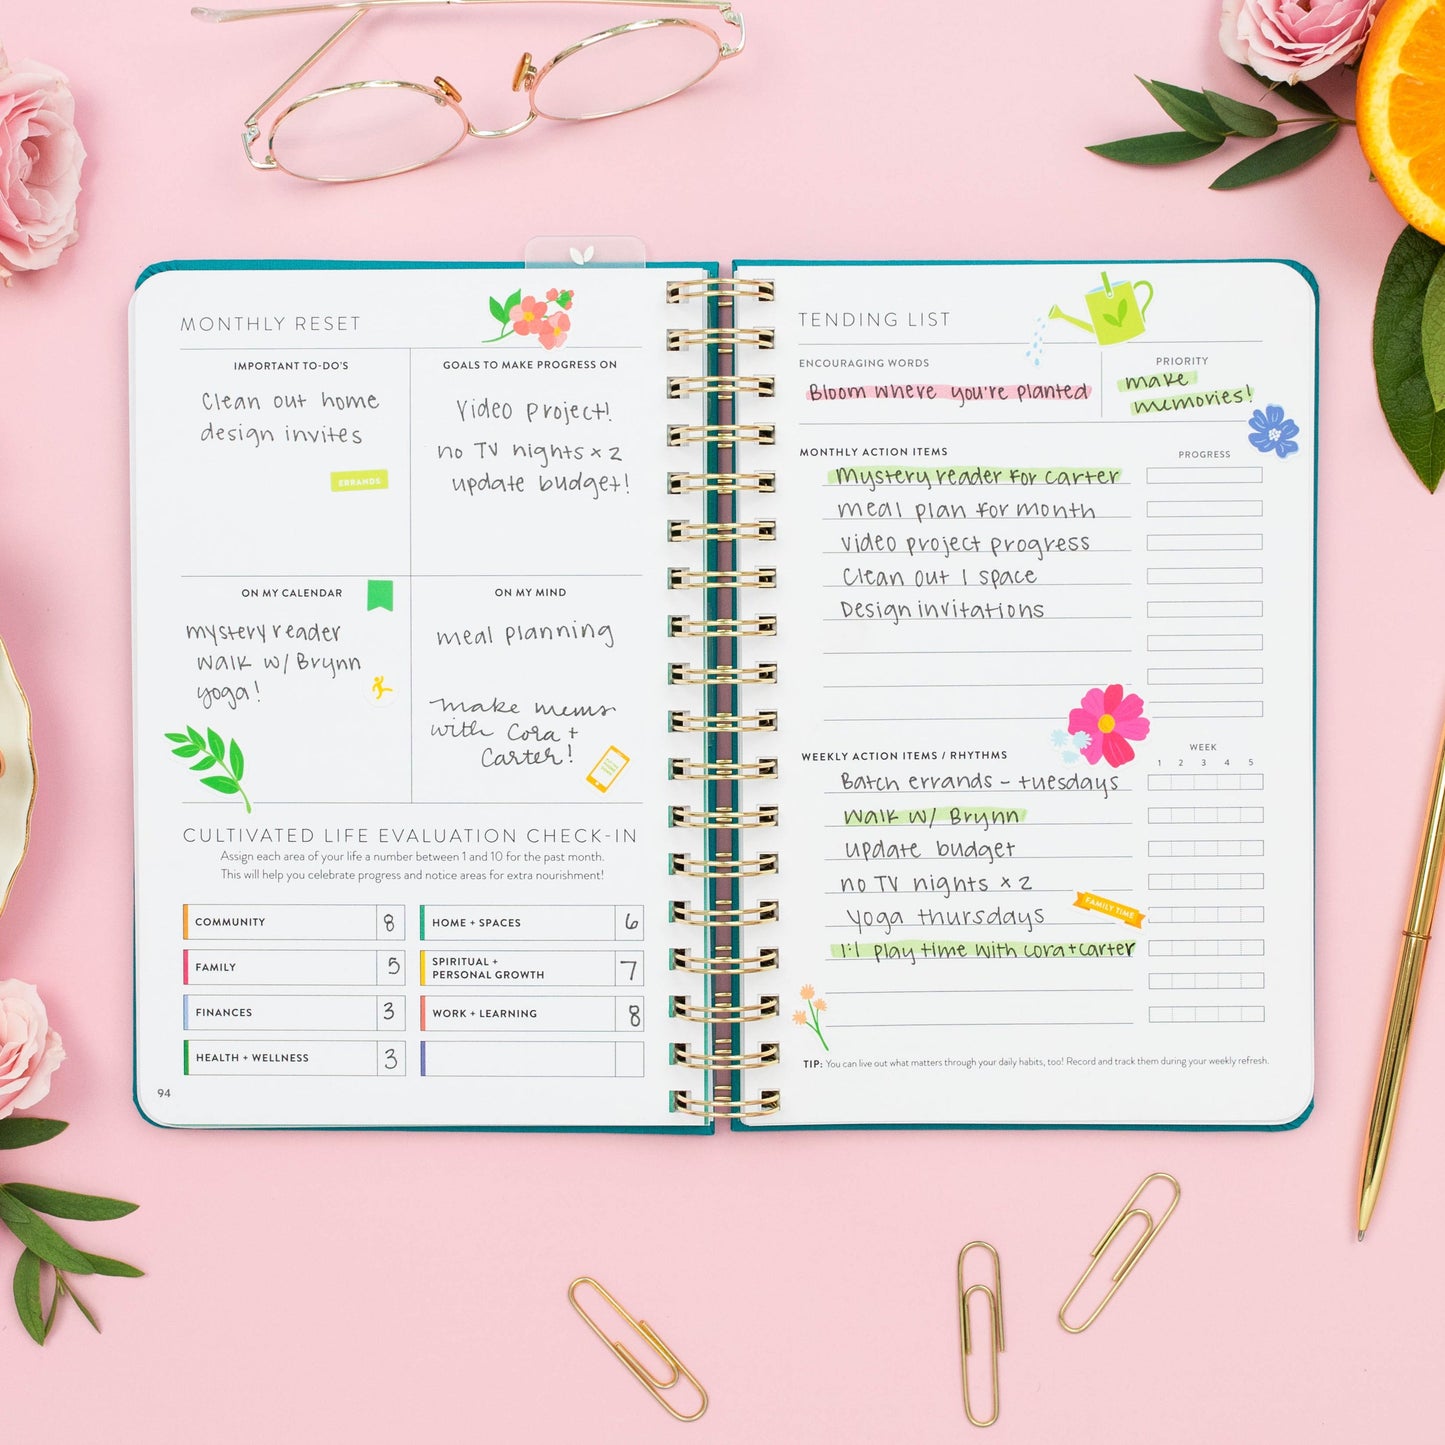 MONTHLY RESET
IMPORTANT TO-DO'S
Clean out home
design invites
ERRANDS
GOALS TO MAKE PROGRESS ON
Video project!
no TV nights x 2
update budget!
ON MY CALENDAR
mystery reader
walk w/ Brynn
yoga!
ON MY MIND
meal planning
make mems
with Cora +
Carter!
CULTIVATED LIFE EVALUATION CHECK-IN
Assign each area of your life a number between 1 and 10 for the past month.
This will help you celebrate progress and notice areas for extra nourishment!
COMMUNITY 8
FAMILY 5
FINANCES 3
HEALTH + WELLNESS 3
HOME + SPACES 6
SPIRITUAL +
PERSONAL GROWTH 7
WORK + LEARNING 8
94
TENDING LIST
ENCOURAGING WORDS
Bloom where you're planted
PRIORITY
make
memories!
MONTHLY ACTION ITEMS PROGRESS
Mystery reader for carter
meal plan for month
video project progress
Clean out 1 space
Design invitations
WEEKLY ACTION ITEMS / RHYTHMS WEEK
1 2 3 4 5
Batch errands - tuesdays
walk w/ Brynn
update budget
no TV nights x 2
yoga thursdays
FAMILY TIME
1:1 play time with cora + carter
TIP: You can live out what matters through your daily habits, too! Record and track them during your weekly refresh.